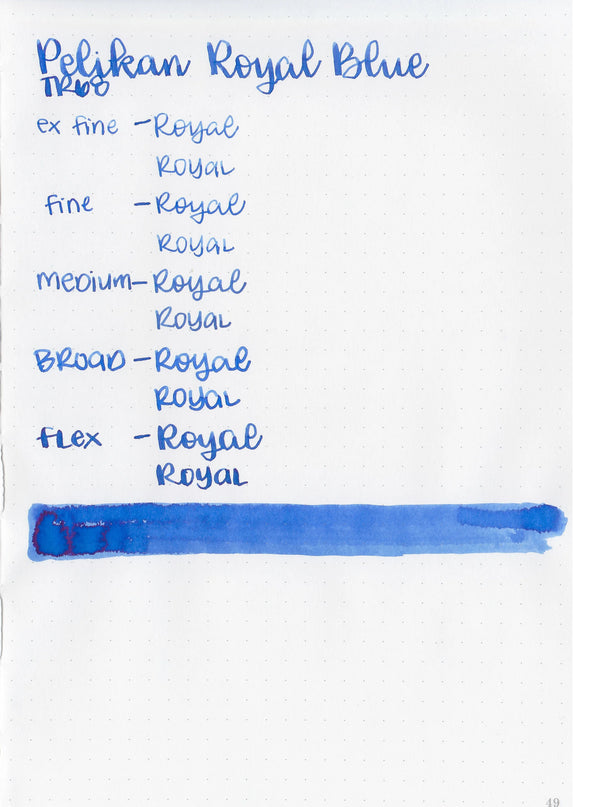 Pelikan Royal Blue
TR68
ex fine - Royal
ROYAL
fine - Royal
ROYAL
MEDIUM - Royal
ROYAL
BROAD - Royal
ROYAL
FLEX - Royal
ROYAL
49